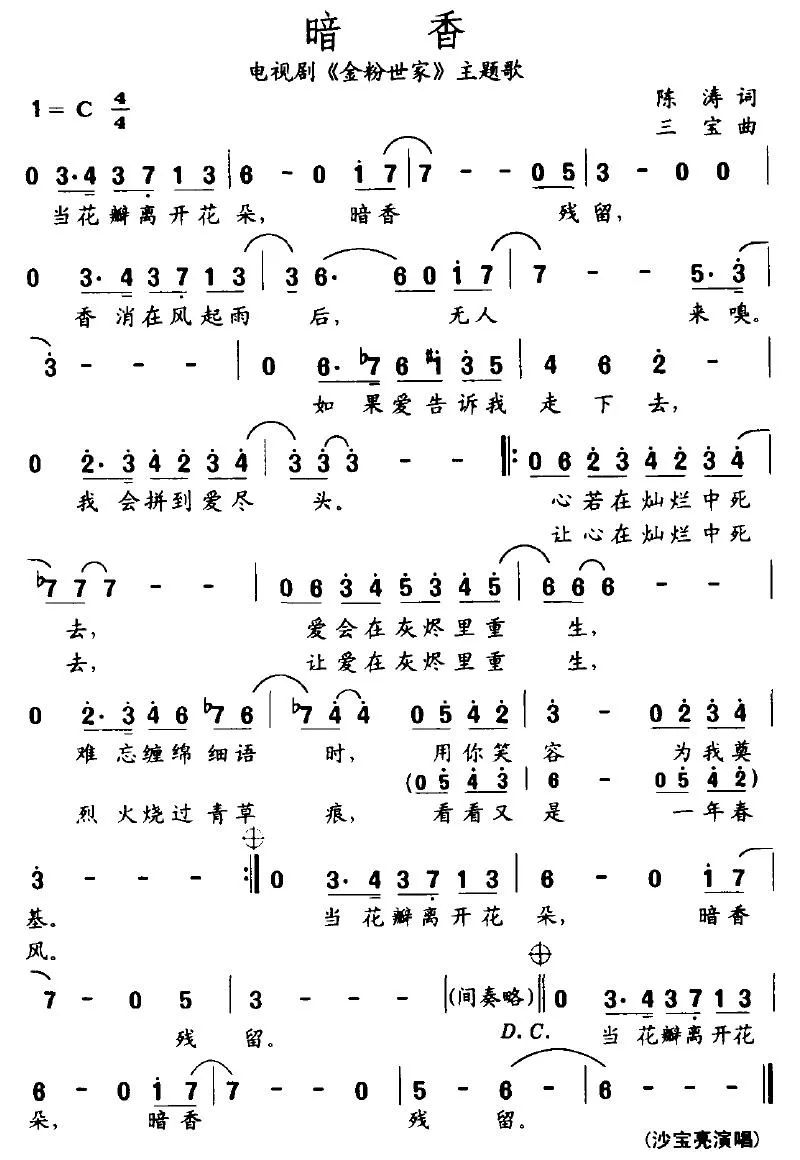 暗 香
电视剧《金粉世家》主题歌
1 = C 4/4
陈 涛 词
三 宝 曲
0 3·4 3 7 1 3 | 6 - 0 1 7 | 7 - - 0 5 | 3 - 0 0 |
当花瓣离开花朵, 暗香 残留,
0 3·4 3 7 1 3 | 3 6· 6 0 1 7 | 7 - - 5·3 |
香消在风起雨后, 无人 来嗅。
3 - - - | 0 6·♭7 6 ♯1 3 5 | 4 6 2 - |
如果爱告诉我走下去,
0 2·3 4 2 3 4 | 3 3 3 - - ‖: 0 6 2 3 4 2 3 4 |
我会拼到爱尽头。 心若在灿烂中死
让心在灿烂中死
♭7 7 7 - - | 0 6 3 4 5 3 4 5 | 6 6 6 - - |
去, 爱会在灰烬里重生,
去, 让爱在灰烬里重生,
0 2·3 4 6 ♭7 6 | ♭7 4 4 0 5 4 2 | 3 - 0 2 3 4 |
难忘缠绵细语时, 用你笑容 为我奠
(0 5 4 3 | 6 - 0 5 4 2)
烈火烧过青草痕, 看看又是 一年春
3 - - - :‖ 0 3·4 3 7 1 3 | 6 - 0 1 7 |
基。 当花瓣离开花朵, 暗香
风。
7 - 0 5 | 3 - - - | (间奏略) ‖ 0 3·4 3 7 1 3 |
残留。 D.C. 当花瓣离开花
6 - 0 1 7 | 7 - - 0 | 5 - 6 - | 6 - - - ‖
朵, 暗香 残留。
(沙宝亮演唱)